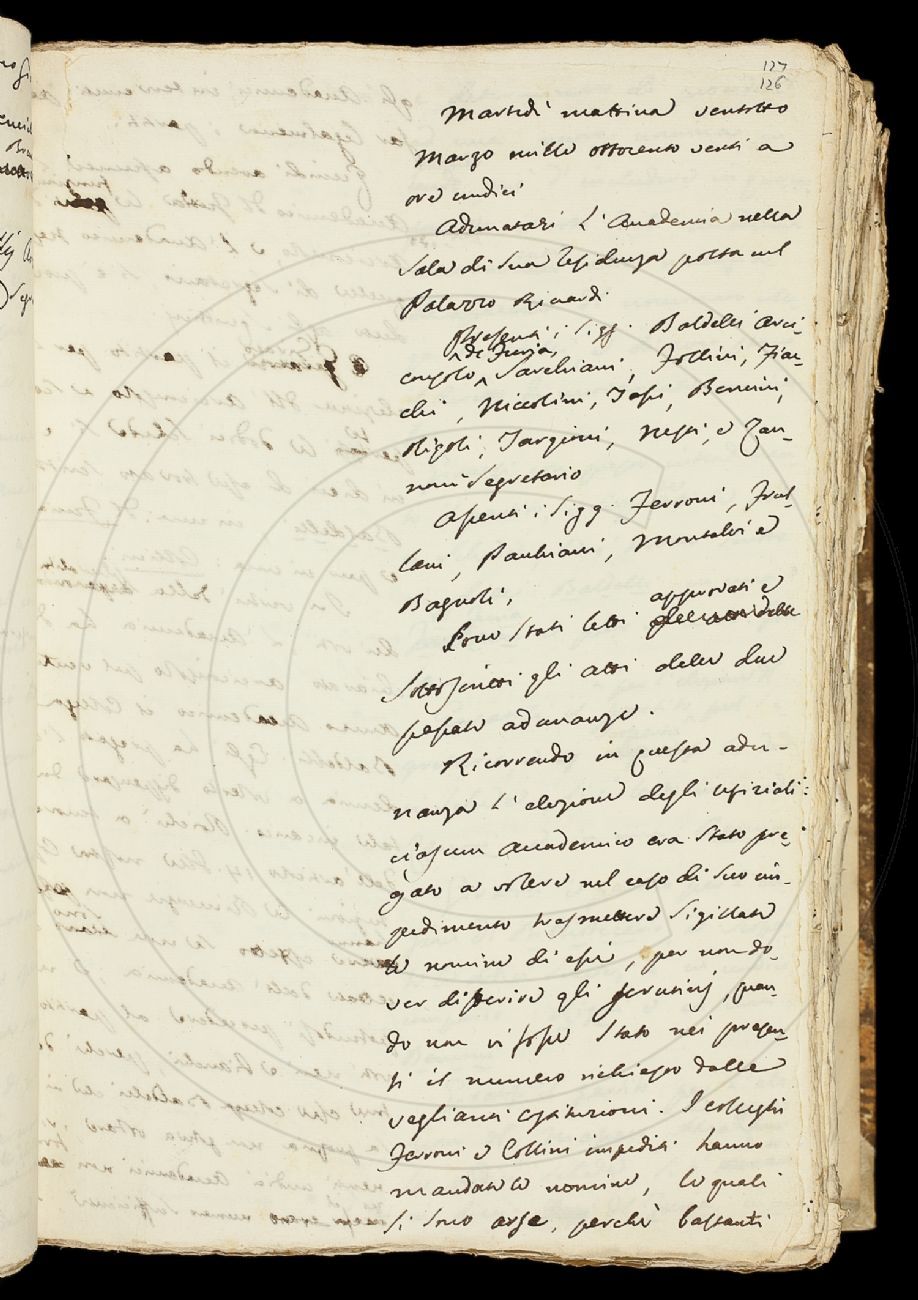 127
126
Martedì mattina ventotto
Marzo mille ottocento venti a
ore undici
Adunatasi l'Accademia nella
Sala di sua residenza posta nel
Palazzo Ricardi
Presenti i Sigg. Baldelli Arci-
consolo, del Furia, Sarchiani, Follini, Fiac-
chi, Niccolini, Tesi, Bencini,
Rigoli, Targioni, Nesti, e Zan-
noni Segretario
Assenti i Sigg. Ferroni, Frul-
lani, Pauchiani, Montalvi e
Bagnoli,
Sono stati letti approvati e
sottoscritti gli atti delle due
passate adunanze.
Ricorrendo in questa adu-
nanza l'elezione degli ufiziali:
ciascun Accademico era stato pre-
gato a volere nel caso di suo im-
pedimento trasmettere sigillate
le nomine di essi, per non do-
ver differire gli scrutinj, quan-
do non vi fosse stato nei presen-
ti il numero richiesto dalle
veglianti costituzioni. I colleghi
Ferroni e Collini impediti hanno
mandato le nomine, le quali
si sono arse, perchè bastanti